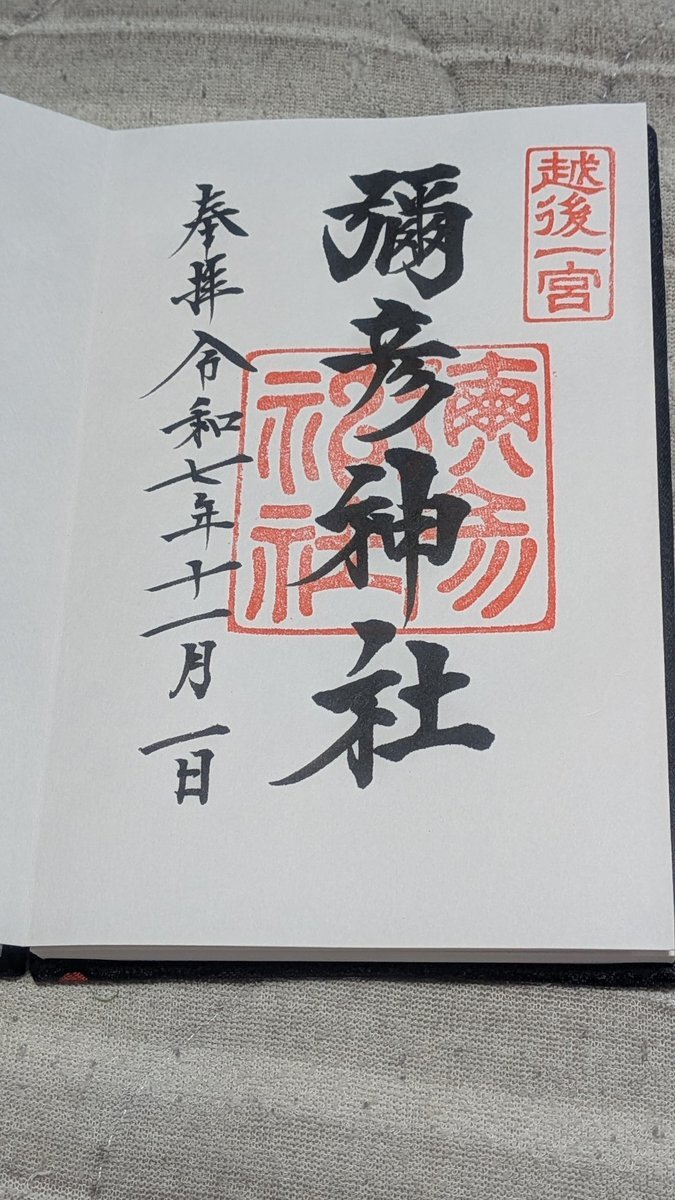 越後一宮
彌彦神社
奉拝令和七年十一月一日